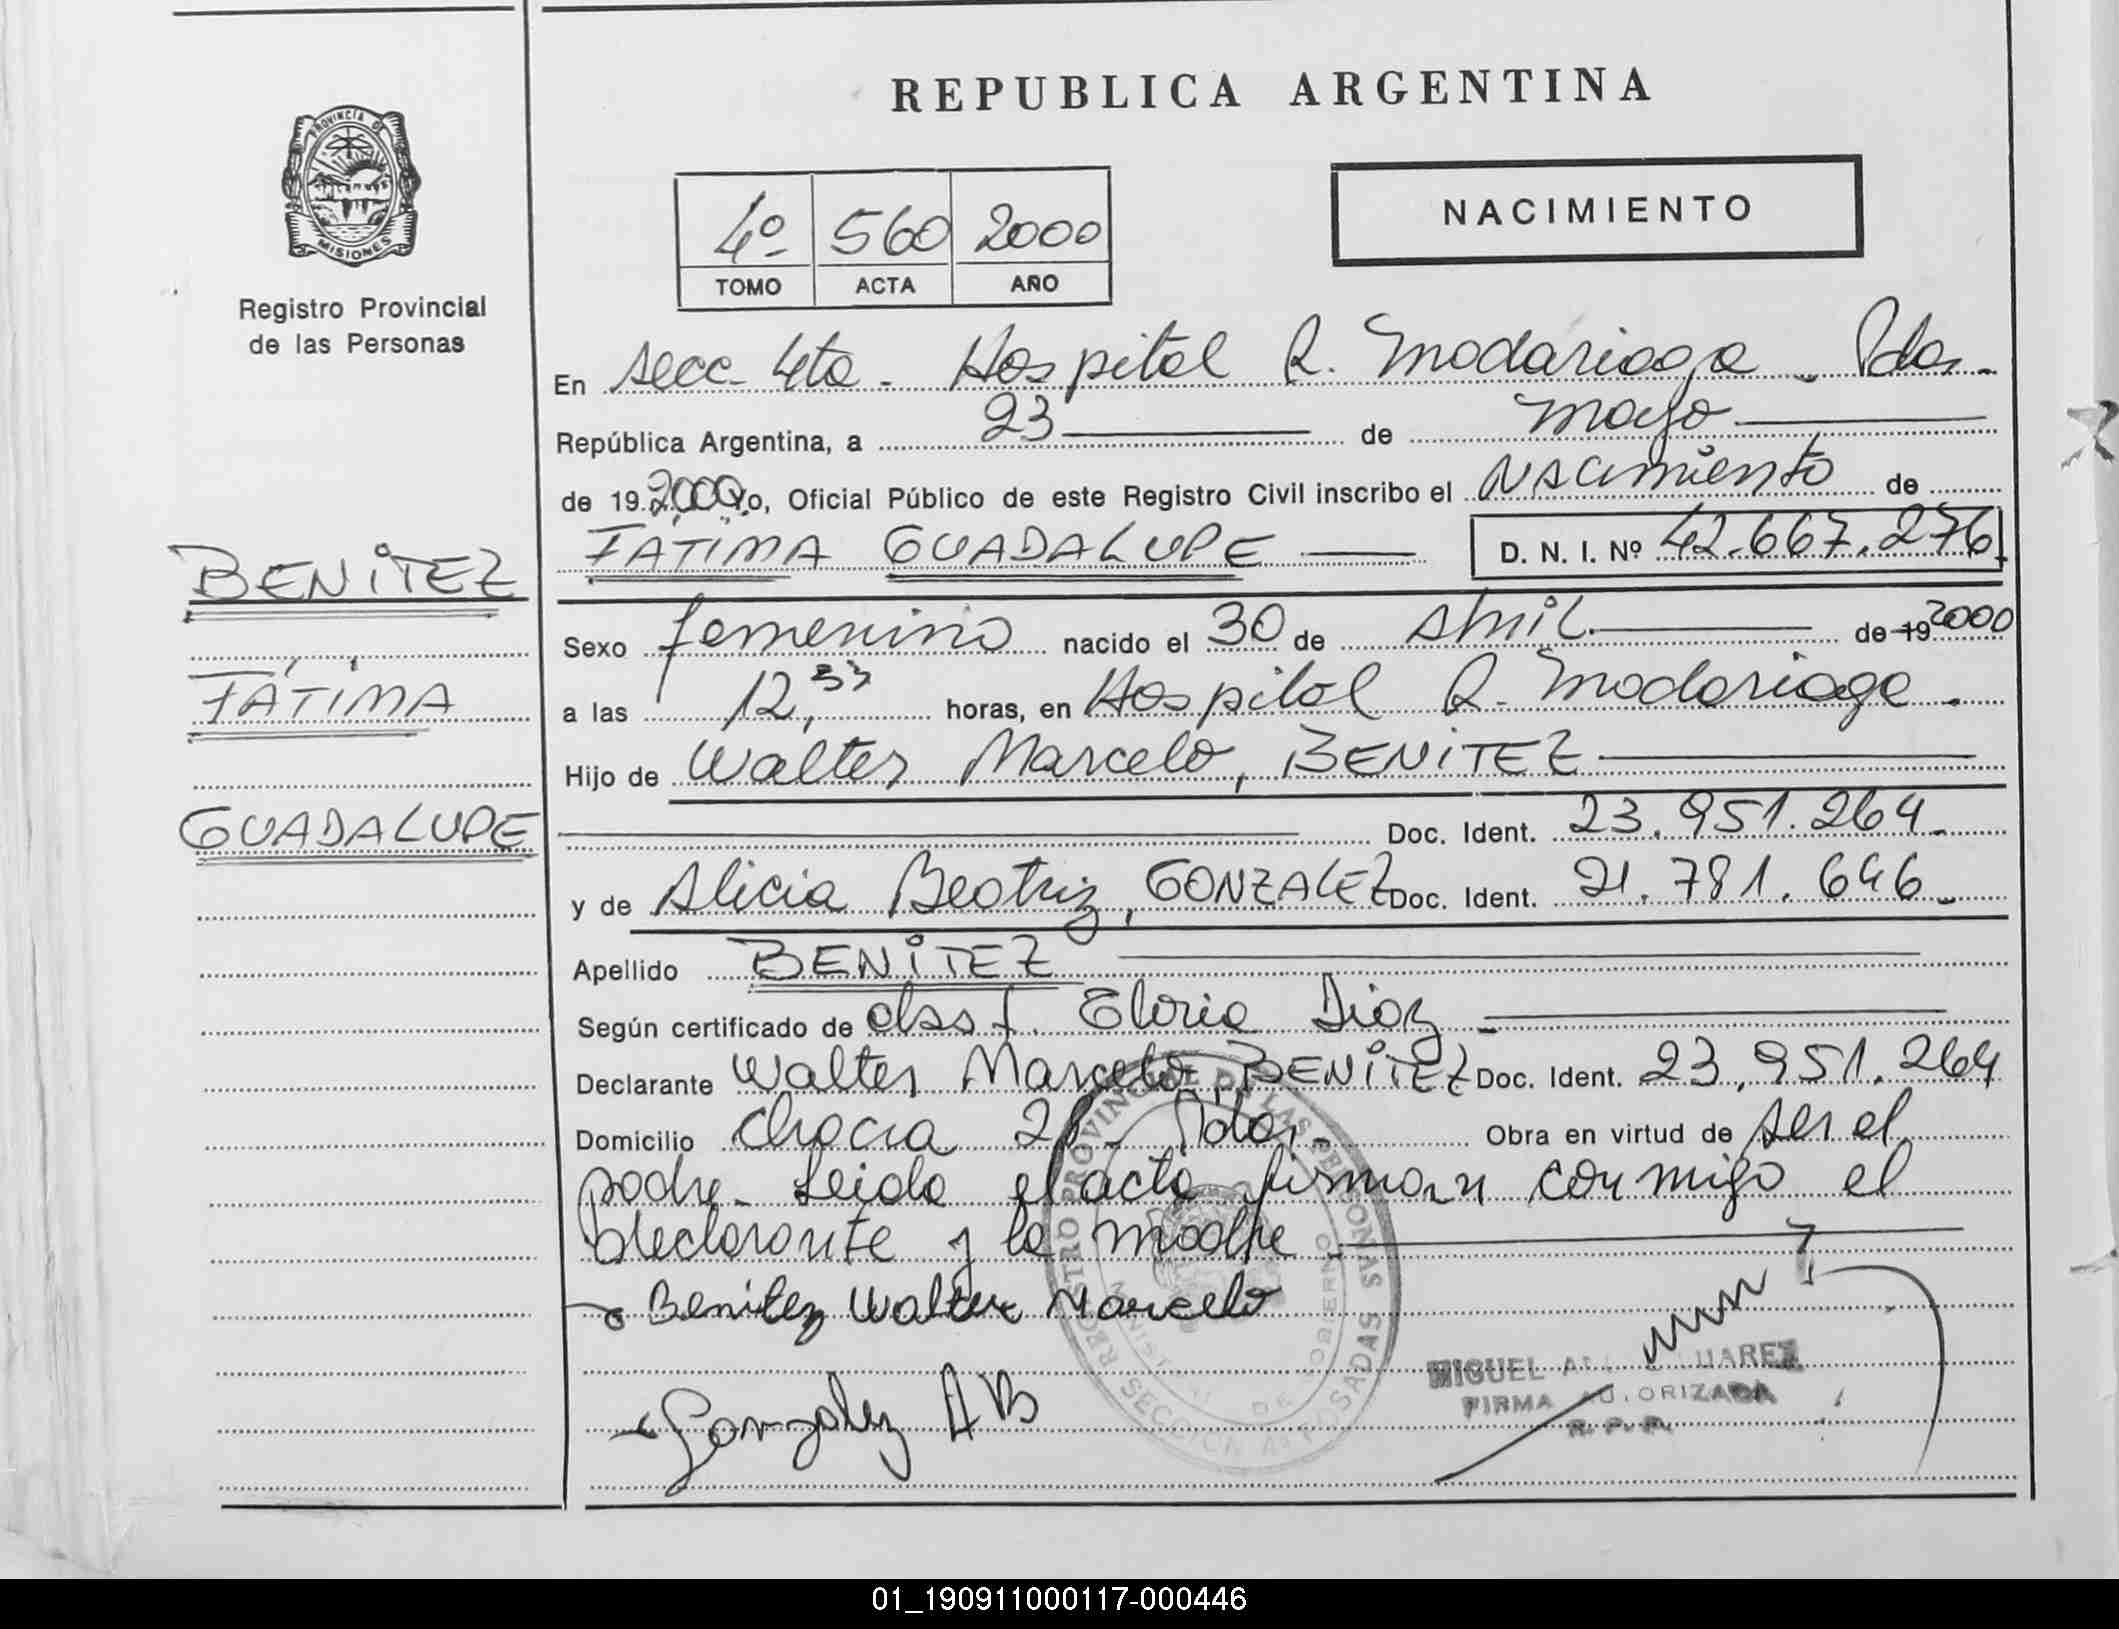 REPUBLICA ARGENTINA
PROVINCIA DE
MISIONES
Registro Provincial
de las Personas
NACIMIENTO
4º 560 2000
TOMO ACTA AÑO
En secc. 4ta. Hospital R. Madariaga - Pdas.
República Argentina, a 23 de mayo
de 19 2000 Yo, Oficial Público de este Registro Civil inscribo el NACimiento de
FATIMA GUADALUPE D. N. I. Nº 42.667.276
BENITEZ
FÁTIMA
GUADALUPE
Sexo femenino nacido el 30 de Abril de 19 2000
a las 12,53 horas, en Hospital R. Madariaga.
Hijo de Walter Marcelo, BENITEZ
Doc. Ident. 23.951.264
y de Alicia Beatriz, GONZALEZ Doc. Ident. 21.781.646
Apellido BENITEZ
Según certificado de Gloria Diaz
Declarante Walter Marcelo, BENITEZ Doc. Ident. 23.951.264
Domicilio Chacra Pdas. Obra en virtud de ser el
padre. Leida el acta firman conmigo el
declarante y la madre
Benitez Walter Marcelo
Gonzalez A B
REGISTRO PROVINCIAL DE LAS PERSONAS
SECCION 4ª POSADAS
MINISTERIO DE GOBIERNO
MIGUEL
FIRMA AUTORIZADA
R. P. P.
01_190911000117-000446